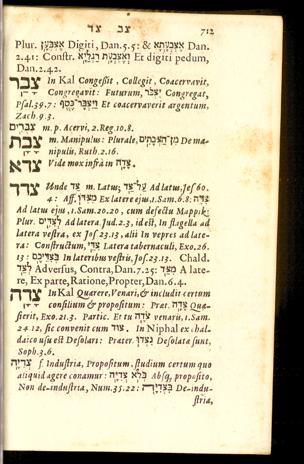 צב צד 712
Plur. Digiti, Dan.5.5: & אֶצְבְּעָתָא Dan.
2.41: Constr. אֶצְבְּעָת רַגְלַיָּא Et digiti pedum,
Dan.2.42.
צָבַר In Kal Congessit, Collegit, Coacervavit,
Congregavit: Futurum, יִצְבֹּר Congregat,
Psal.39.7: וַיִּצְבָּר־כֶּסֶף Et coacervaverit argentum,
Zach.9.3.
צִבֻּרִים m. p. Acervi, 2.Reg.10.8.
צבת m. Manipulus: Plurale, מִן־הַצְּבָתִים De ma-
nipulis, Ruth.2.16.
צדא Vide mox infrà in צָדָה.
צדד Unde צַד m. Latus; עַל־צַד Ad latus, Jes 60.
4: מִצַּד Ex latere ejus, 1.Sam.6.8: צִדָּה
Ad latus ejus, 1.Sam.20.20, cum defectu Mappik:
Plur. לְצִדִּים Ad latera Jud.2.3, id est, In flagella ad
latera vestra, ex Jos 23.13, alii In vepres ad late-
ra: Constructum, צִדֵּי Latera tabernaculi, Exo.26.
13: בְּצִדֵּיכֶם In lateribus vestris, Jos.23.13. Chald.
לְצַד Adversus, Contra, Dan.7.25: מִצַּד A late-
re, Ex parte, Ratione, Propter, Dan.6.4.
צָדָה In Kal Quærere, Venari, & includit certum
consilium & propositum: Præt. צָדָה Quæ-
sierit, Exo.21.3. Partic. Et tu צֹדֶה venaris, 1.Sam.
24.12, sic convenit cum צוד. In Niphal ex chal-
daico usu est Desolari: Præter. נִצְדּוּ Desolatæ sunt,
Soph.3.6.
צְדִיָּה f. Industria, Propositum, studium certum quo
aliquid agere conamur: בְּלֹא צְדִיָּה Absq; proposito,
Non de industria, Num.35.22: בִּצְדִיָּה De indu-
stria,